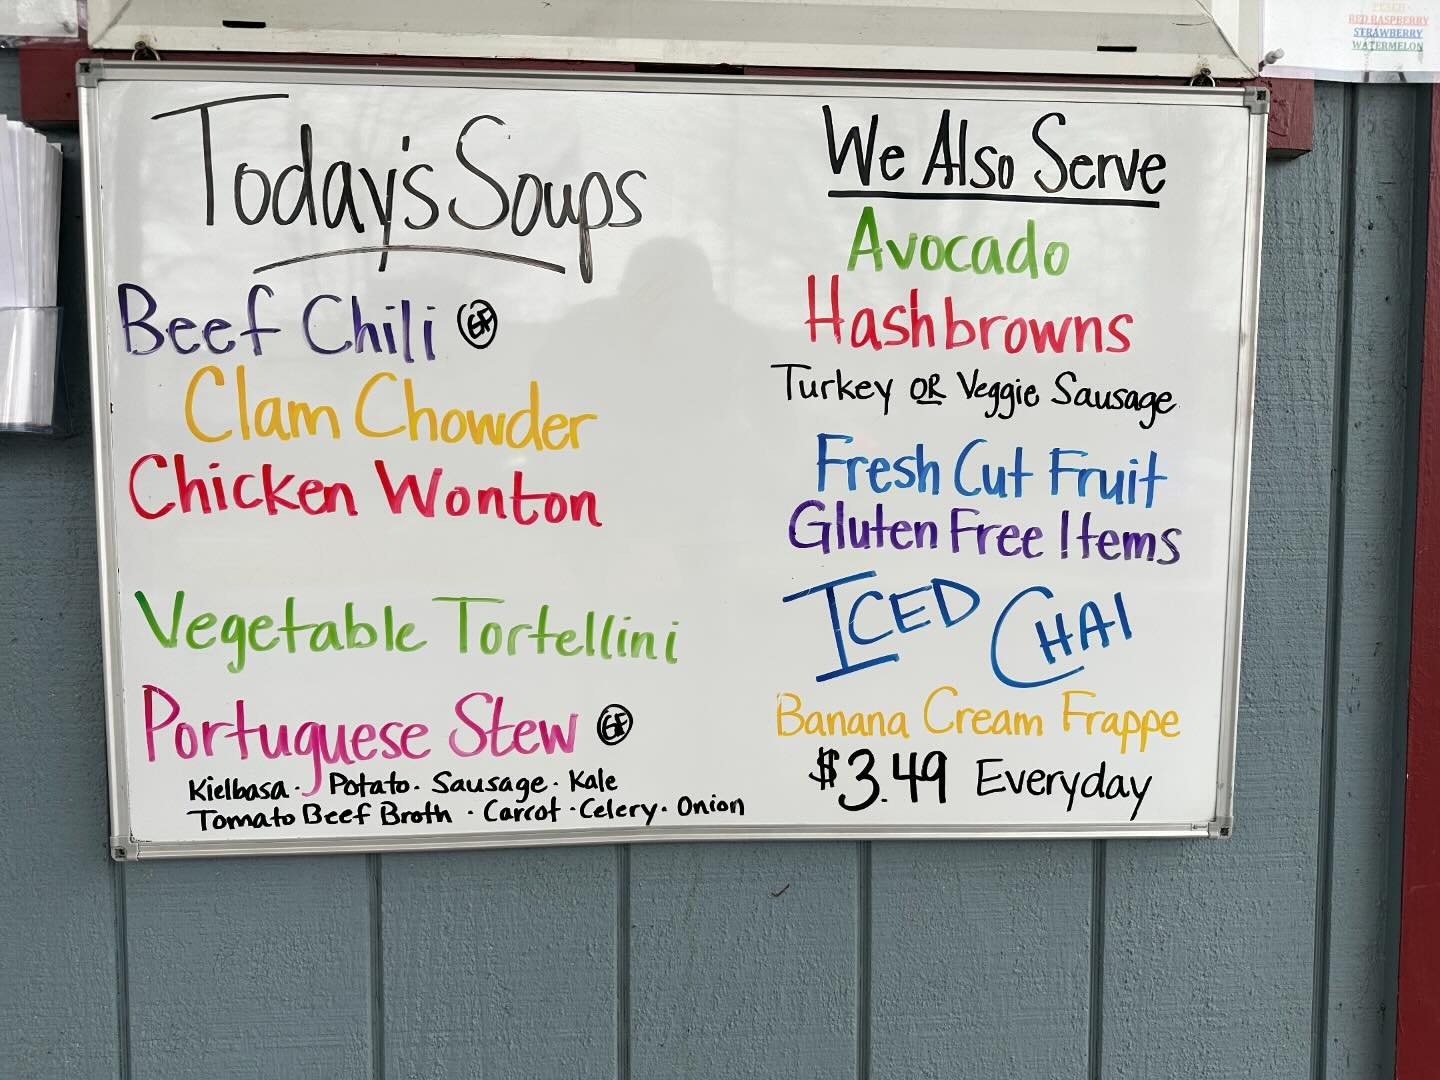 PEACH
RED RASPBERRY
STRAWBERRY
WATERMELON
Today's Soups
Beef Chili GF
Clam Chowder
Chicken Wonton
Vegetable Tortellini
Portuguese Stew GF
Kielbasa · Potato · Sausage · Kale
Tomato Beef Broth · Carrot · Celery · Onion
We Also Serve
Avocado
Hashbrowns
Turkey OR Veggie Sausage
Fresh Cut Fruit
Gluten Free Items
ICED CHAI
Banana Cream Frappe
$3.49 Everyday